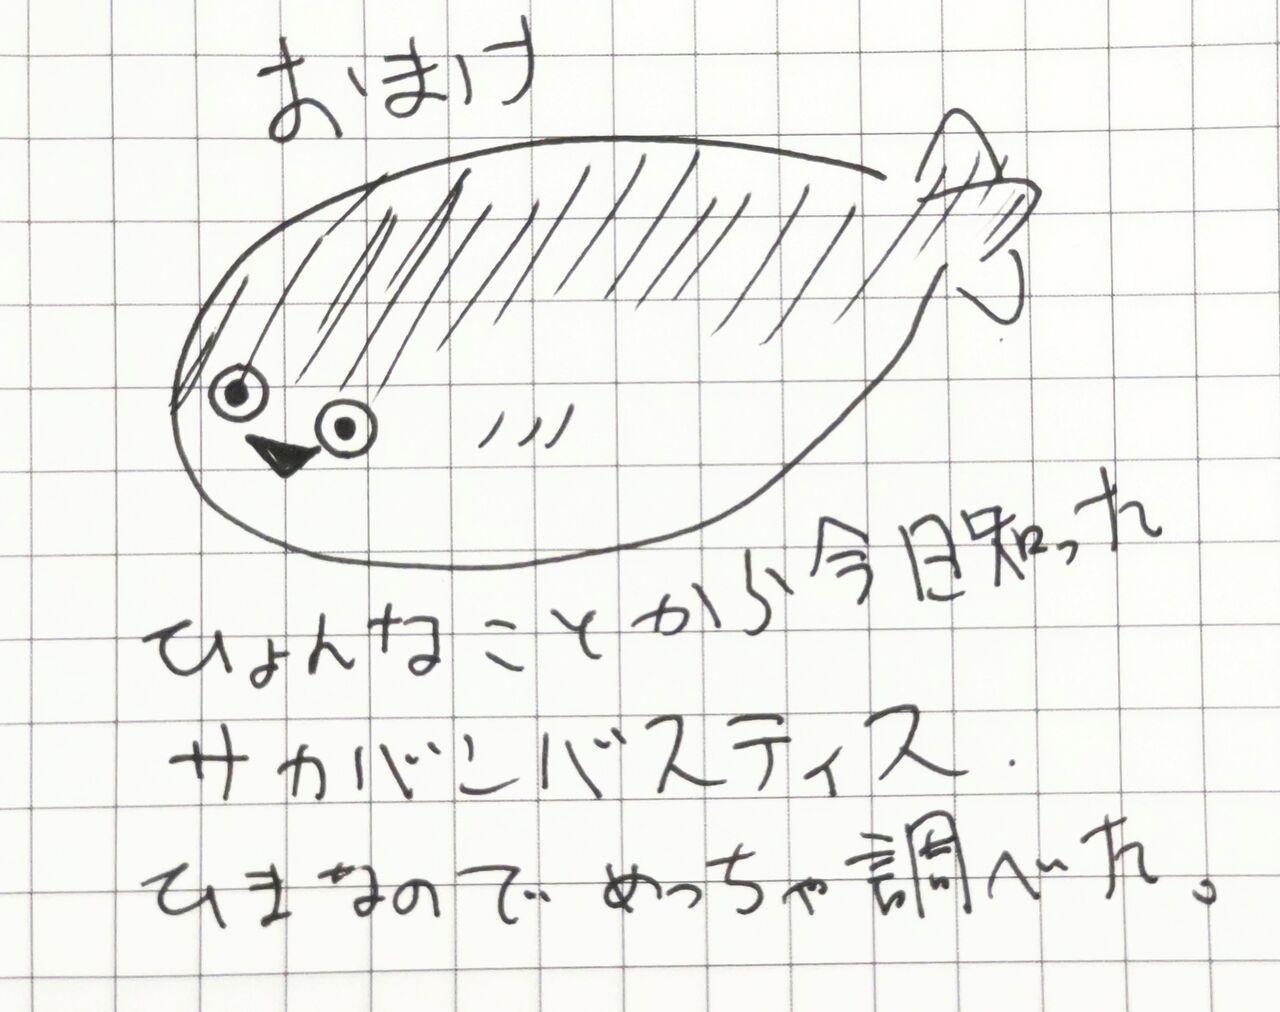 おまけ
ひょんなことから今日知った
サカバンバスティス.
ひまなのでめっちゃ調べた。